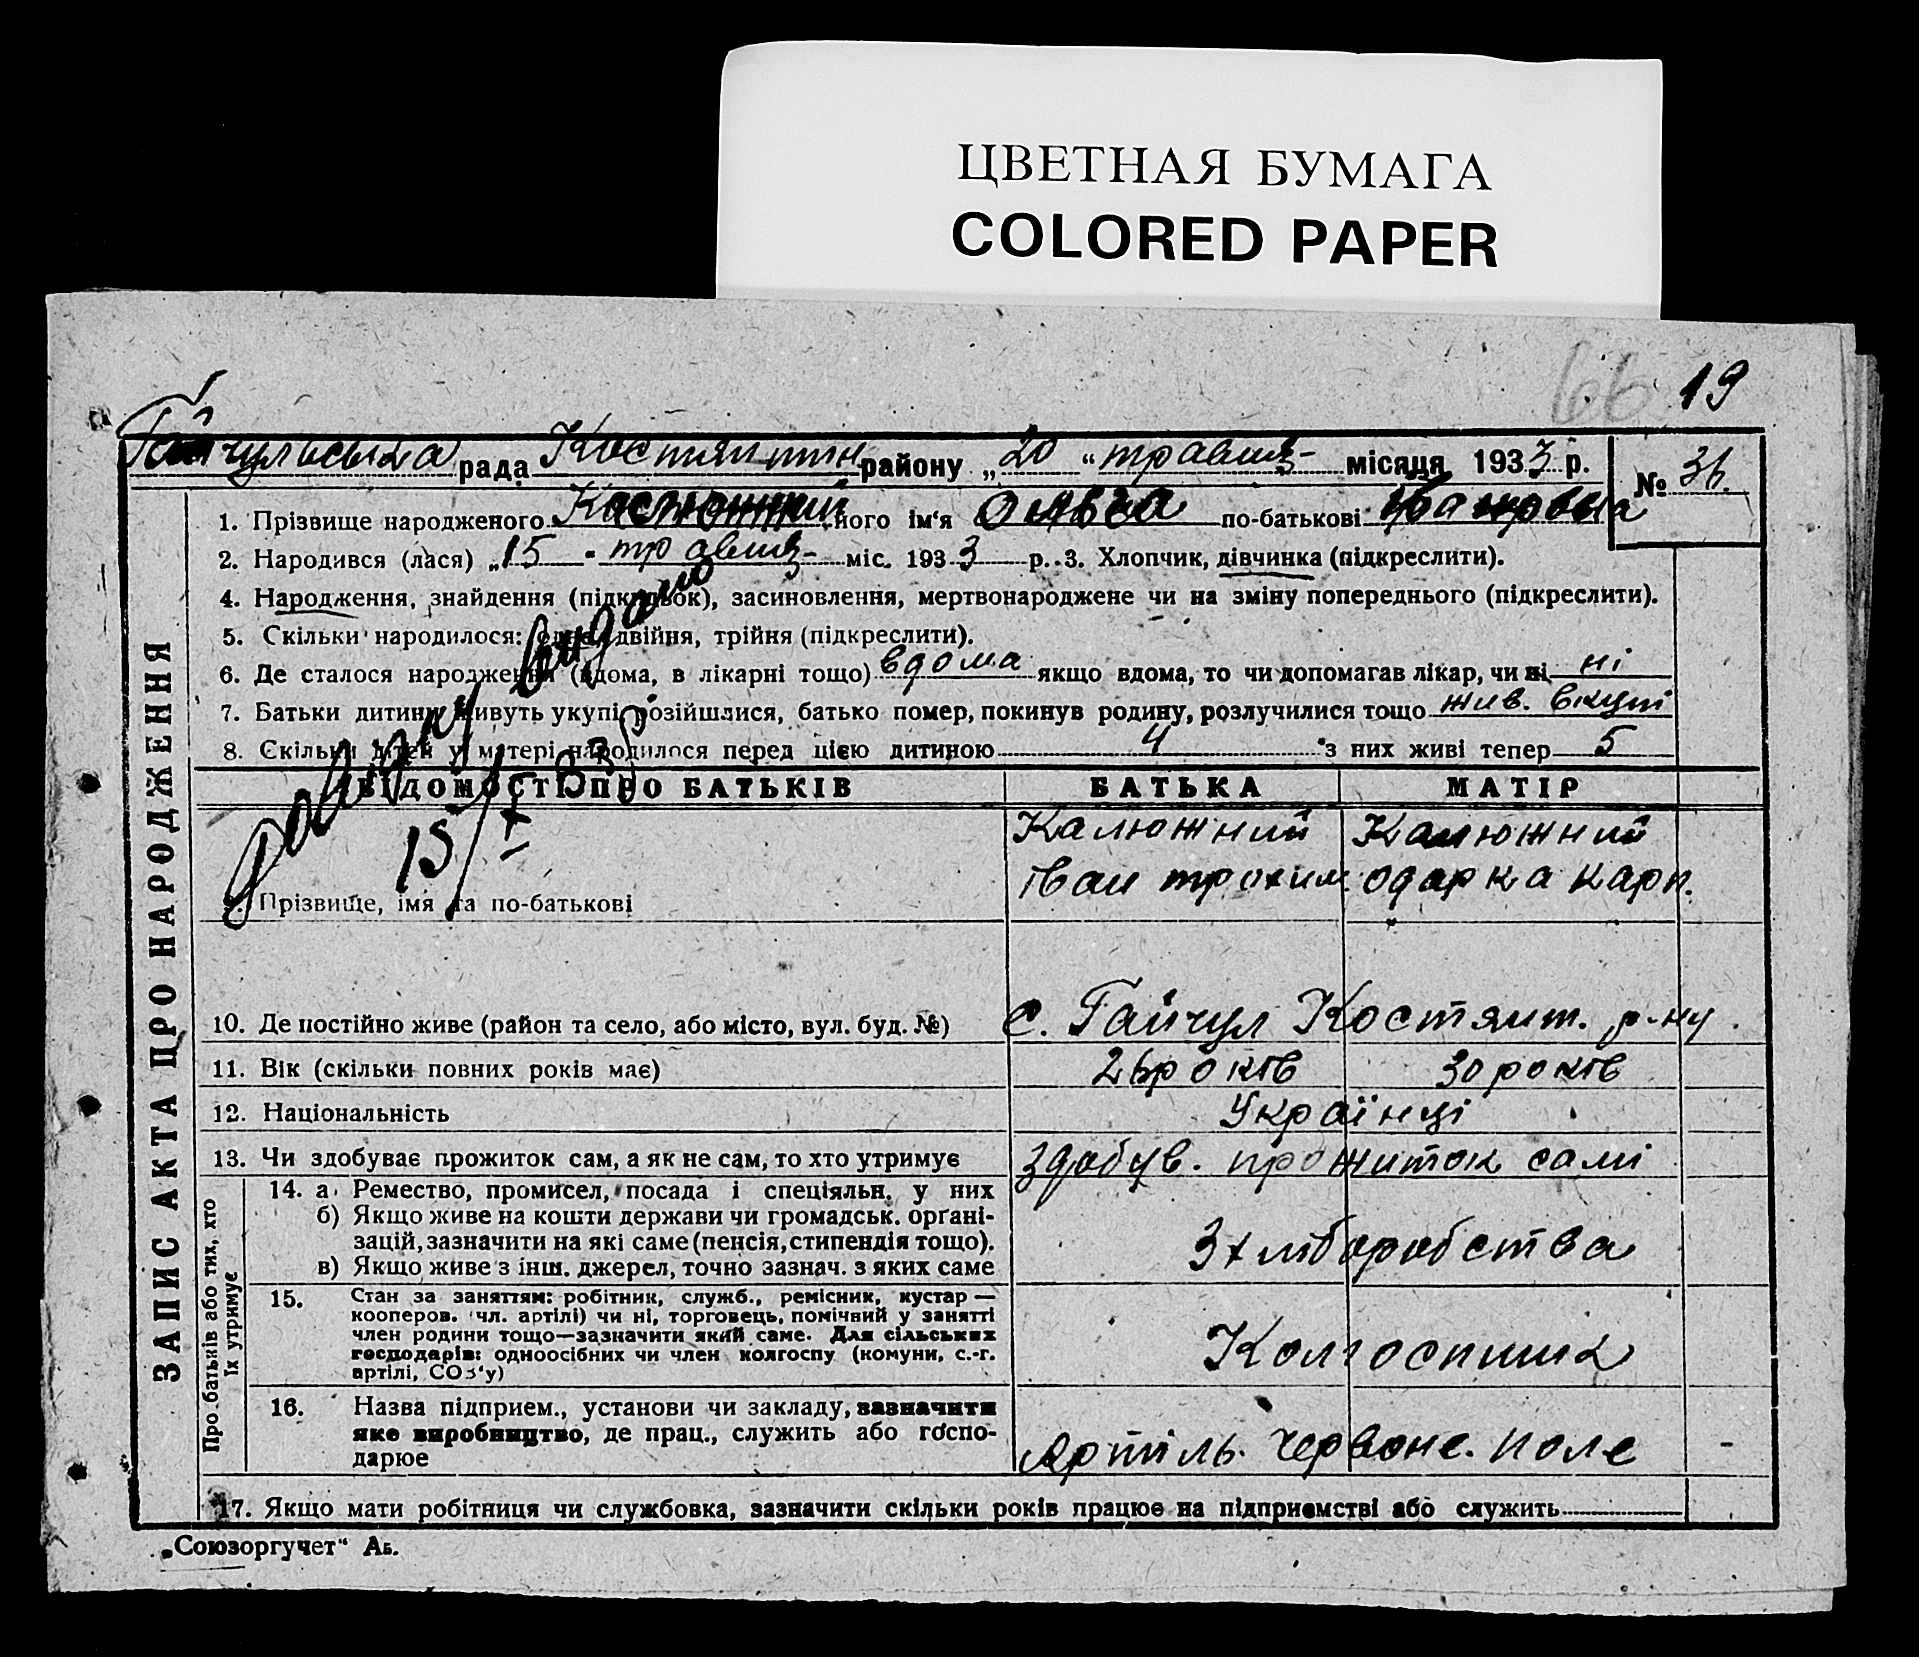 ЦВЕТНАЯ БУМАГА
COLORED PAPER
66 19
Гайчульська рада Костянтин району „20“ травня місяця 1933 р. № 36.
ЗАПИС АКТА ПРО НАРОДЖЕННЯ
1. Прізвище народженого його ім‘я Ольга по-батькові Івановна
2. Народився (лася) „15 травня міс. 1933 р. 3. Хлопчик, дівчинка (підкреслити).
4. Народження, знайдення (підкидьок), засиновлення, мертвонароджене чи на зміну попереднього (підкреслити).
5. Скільки народилося: одне, двійня, трійня (підкреслити).
6. Де сталося народження (вдома, в лікарні тощо) вдома якщо вдома, то чи допомагав лікар, чи ні, ні
7. Батьки дитини живуть укупі, розійшлися, батько помер, покинув родину, розлучилися тощо жив. вкупі
8. Скільки дітей у матері народилося перед цією дитиною 4 з них живі тепер 5
довідку видано
15/X 33 р.
ВІДОМОСТІ ПРО БАТЬКІВ БАТЬКА МАТІР
9. Прізвище, імя та по-батькові
Калюжний Калюжний
Іван трохим. одарка карп.
10. Де постійно живе (район та село, або місто, вул. буд. №) с. Гайчул Костянт. р-ну
11. Вік (скільки повних років має) 26 років 30 років
12. Національність Українці
13. Чи здобуває прожиток сам, а як не сам, то хто утримує здобув. прожиток самі
Про батьків або тих, хто їх утримує
14. а Ремество, промисел, посада і спеціяльн. у них
б) Якщо живе на кошти держави чи громадськ. орґані-
зацій, зазначити на які саме (пенсія, стипендія тощо).
в) Якщо живе з інш. джерел, точно зазнач. з яких саме
З хліборобства
15. Стан за заняттям: робітник, служб., ремісник, кустар —
кооперов. чл. артілі) чи ні, торговець, помічний у занятті
член родини тощо—зазначити який саме. Для сільських
господарів: одноосібних чи член колгоспу (комуни, с.-г.
артілі, СОЗ‘у)
Колгоспник
16. Назва підприєм., установи чи закладу, зазначити
яке виробництво, де прац., служить або госпо-
дарює
Артіль. Червоне. поле -
17. Якщо мати робітниця чи службовка, зазначити скільки років працює на підприємстві або служить
„Союзоргучет“ АБ.